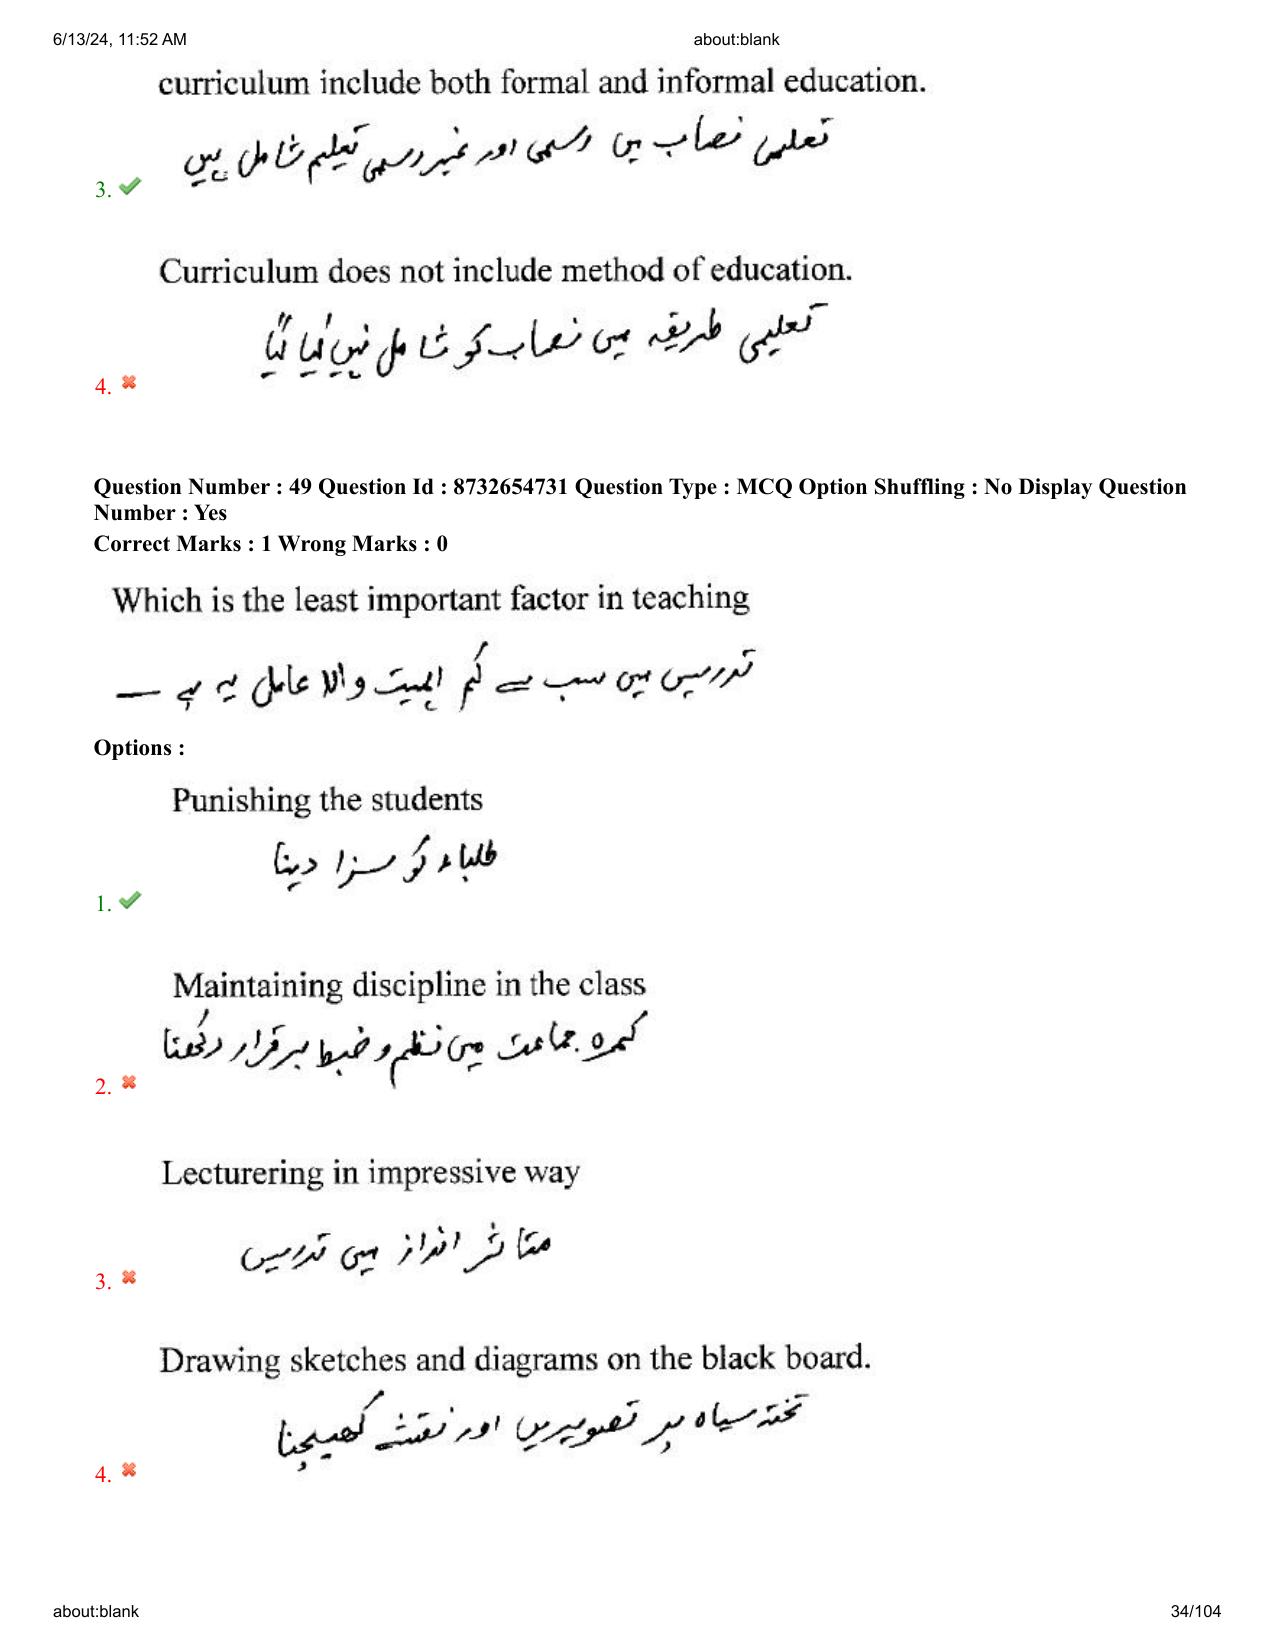 6/13/24, 11:52 AM about:blank
curriculum include both formal and informal education.
تعلیمی نصاب میں رسمی اور غیر رسمی تعلیم شامل ہیں
3.
Curriculum does not include method of education.
تعلیمی طریقہ میں نصاب کو شامل نہیں کیا گیا
4.
Question Number : 49 Question Id : 8732654731 Question Type : MCQ Option Shuffling : No Display Question
Number : Yes
Correct Marks : 1 Wrong Marks : 0
Which is the least important factor in teaching
تدریس میں سب سے کم اہمیت والا عامل یہ ہے —
Options :
Punishing the students
طلباء کو سزا دینا
1.
Maintaining discipline in the class
کمرہ جماعت میں نظم و ضبط برقرار رکھنا
2.
Lecturering in impressive way
متاثر انداز میں تدریس
3.
Drawing sketches and diagrams on the black board.
تختہ سیاہ پر تصویریں اور نقشے کھینچنا
4.
about:blank 34/104